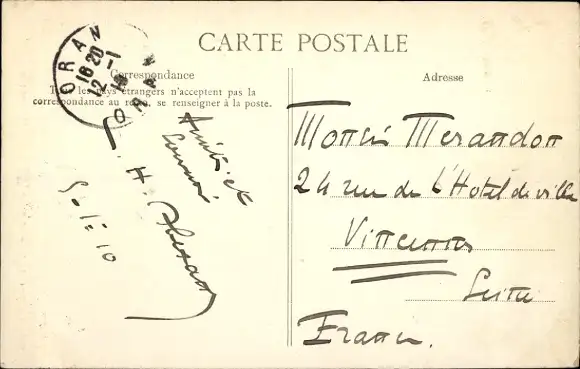 CARTE POSTALE
ORAN
18 20
12 -1
10
ORAN
Correspondance
Tous les pays étrangers n'acceptent pas la
correspondance au recto, se renseigner à la poste.
Adresse
Amitiés et
H.
Monsieur Merandon
24 rue de l'Hotel de ville
Vincennes
Seine
France.